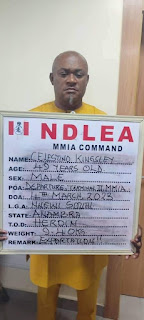 NDLEA
MMIA COMMAND
NAME: CELESTINO KINGSLEY
AGE: 49 YEARS OLD
SEX: MALE
POA: DEPARTURE, TERMINAL II, MMIA
DOA: MARCH 2023
L.G.A: NNEWI SOUTH
STATE: ANAMBRA
T.O.D: HEROIN
WEIGHT:
EXPORTATION!!